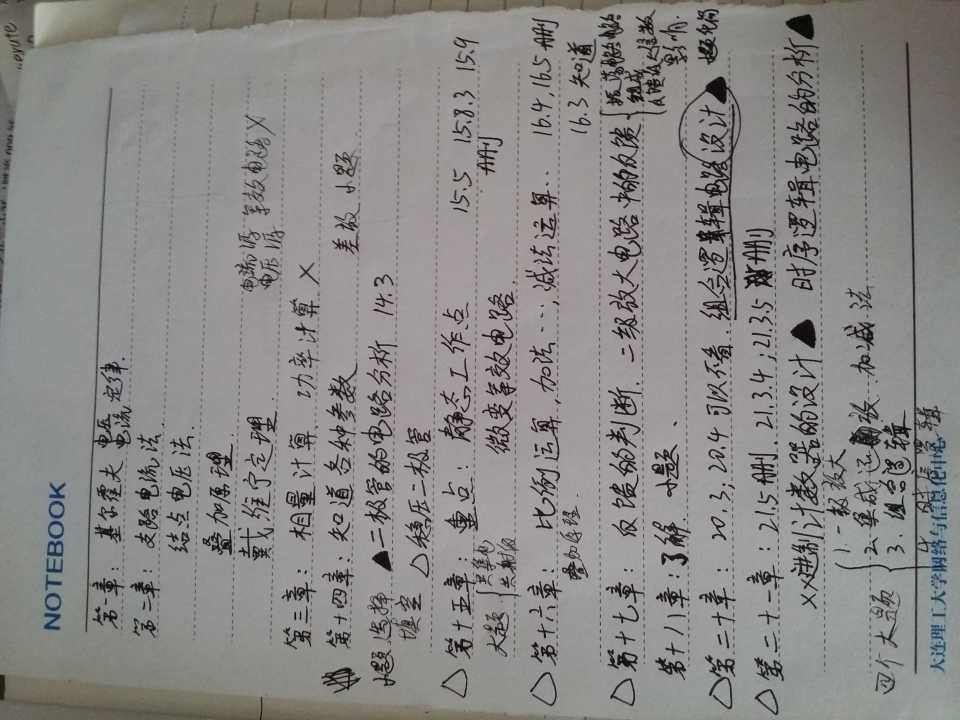 NOTEBOOK
第一章：基尔霍夫 电压 电流 定律.
第二章：支路电流法.
结点电压法.
叠加原理.
戴维宁定理. 电流源 电压源 等效电路 X
第三章：相量计算. 功率计算 X
第十四章：知道各种参数 差放 小题.
小题 选择 填空
▲二极管的电路分析 14.3
△稳压二极管
△第十五章：重点：静态工作点 15.5 15.8.3 15.9 删
大题 { 共集电 共射极
微变等效电路.
△第十六章：比例运算,加法…,减法运算.. 16.4,16.5 删
叠加原理. 16.3 知道
△第十七章：反馈的判断. 二级放大电路中的反馈 {
组成
影响.
第十八章：了解. 小题.
△第二十章：20.3;20.4可以不看. 组合逻辑电路设计▲ 小题 化简
△第二十一章：21.5删. 21.3.4;21.3.5 删
XX进制计数器的设计▲ 时序逻辑电路的分析▲
四个大题 {
1. 一级放大
2. 集成运放 加减法
3. 组合逻辑
4. 时序逻辑
大连理工大学网络与信息化中心